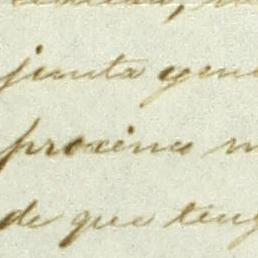 junta gene
proximo m
de que teng